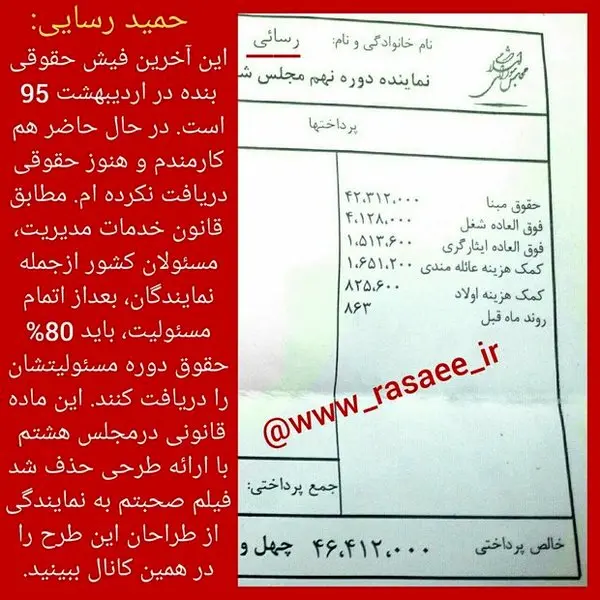 حمید رسایی:
این آخرین فیش حقوقی
بنده در اردیبهشت 95
است. در حال حاضر هم
کارمندم و هنوز حقوقی
دریافت نکرده ام. مطابق
قانون خدمات مدیریت،
مسئولان کشور ازجمله
نمایندگان، بعداز اتمام
مسئولیت، باید 80%
حقوق دوره مسئولیتشان
را دریافت کنند. این ماده
قانونی درمجلس هشتم
با ارائه طرحی حذف شد
فیلم صحبتم به نمایندگی
از طراحان این طرح را
در همین کانال ببینید.
نام خانوادگی و نام: رسائی
نماینده دوره نهم مجلس ش
پرداختها
حقوق مبنا ۴۲،۳۱۲،۰۰۰
فوق العاده شغل ۴،۱۲۸،۰۰۰
فوق العاده ایثارگری ۱،۵۱۳،۶۰۰
کمک هزینه عائله مندی ۱،۶۵۱،۲۰۰
کمک هزینه اولاد ۸۲۵،۶۰۰
روند ماه قبل ۸۶۳
@www_rasaee_ir
جمع پرداختی:
خالص پرداختی ۴۶،۴۱۲،۰۰۰ چهل و